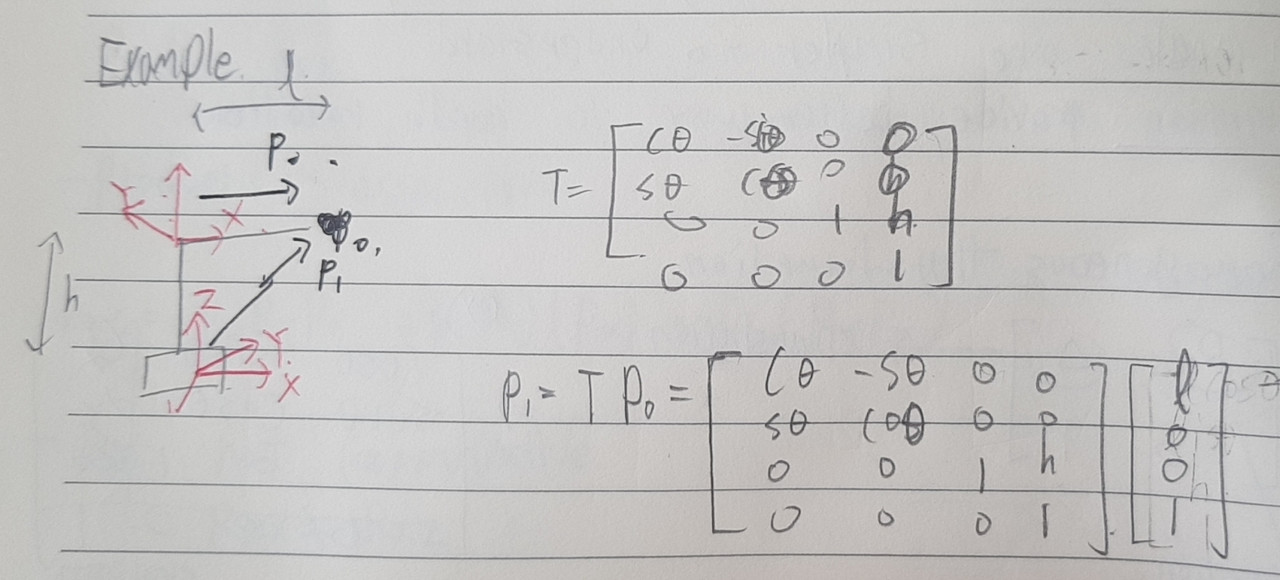 Example. l
P₀
Y X
O₁
P₁
h
Z
Y
X
T= [ Cθ -Sθ 0 0
Sθ Cθ 0 0
0 0 1 h
0 0 0 1 ]
P₁ = T P₀ = [ Cθ -Sθ 0 0 ] [ l ]
Sθ Cθ 0 0 0
0 0 1 h 0
0 0 0 1 1